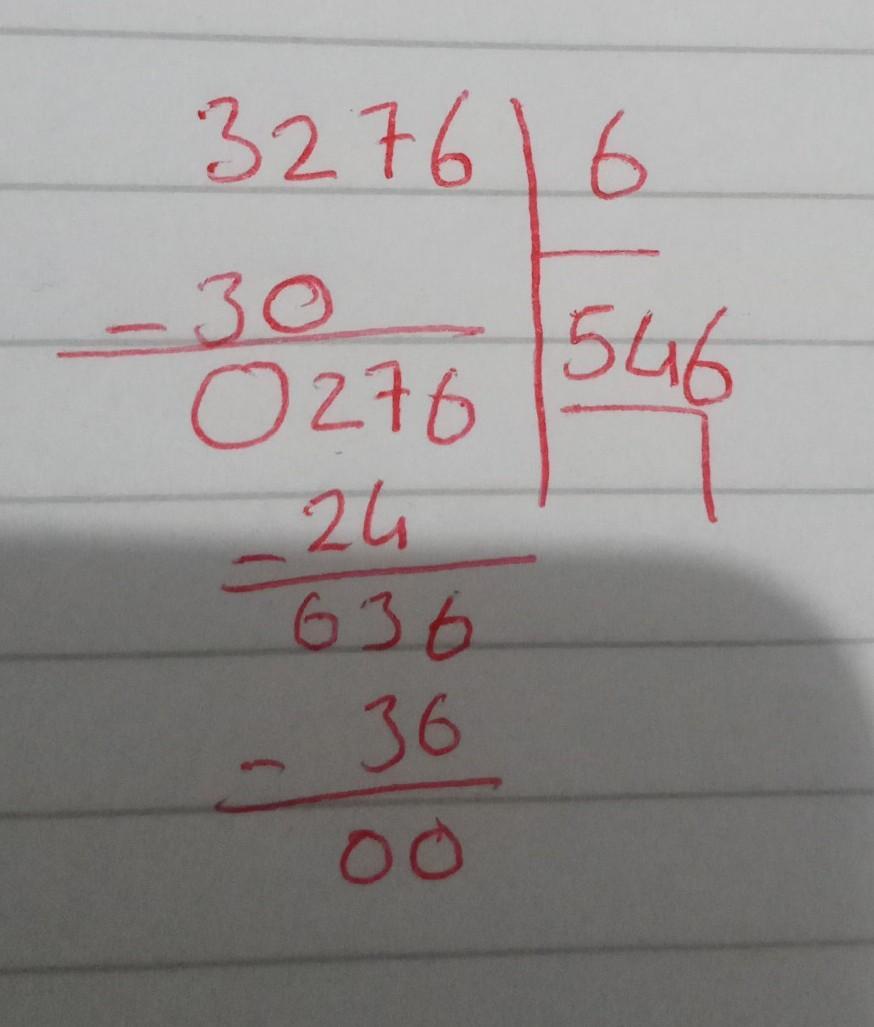 3276 6
- 30
546
0276
- 24
636
- 36
00